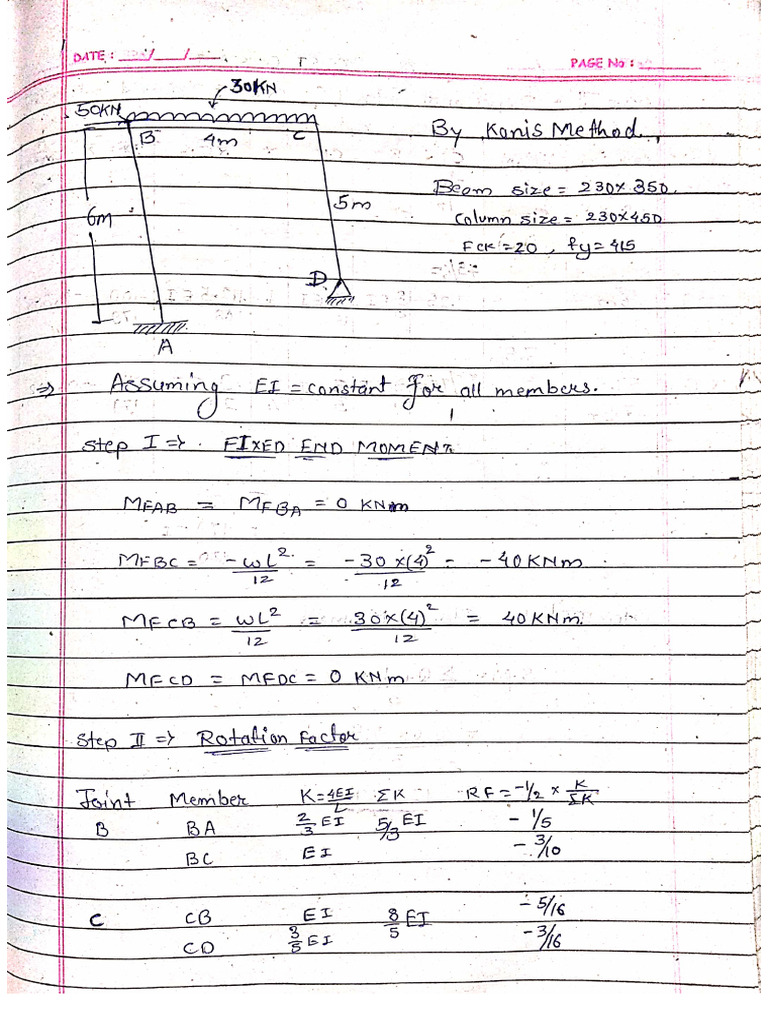 DATE: __/__/__
PAGE No: ______
30KN
50KN
B 4m C
By Kanis Method.
6m
5m
Beam size = 230x350.
Column size = 230x450
Fck = 20, fy = 415
D
A
⇒ Assuming EI = constant for all members.
Step I ⇒ FIXED END MOMENT
MFAB = MFBA = 0 KNm
MFBC = -wL²/12 = -30×(4)²/12 = -40KNm
MFCB = wL²/12 = 30×(4)²/12 = 40KNm.
MFCD = MFDC = 0 KNm
Step II ⇒ Rotation Factor
Joint Member K=4EI/L ΣK RF = -1/2 × K/ΣK
B BA 2/3 EI 5/3 EI -1/5
BC EI -3/10
C CB EI 8/5 EI -5/16
CD 3/5 EI -3/16